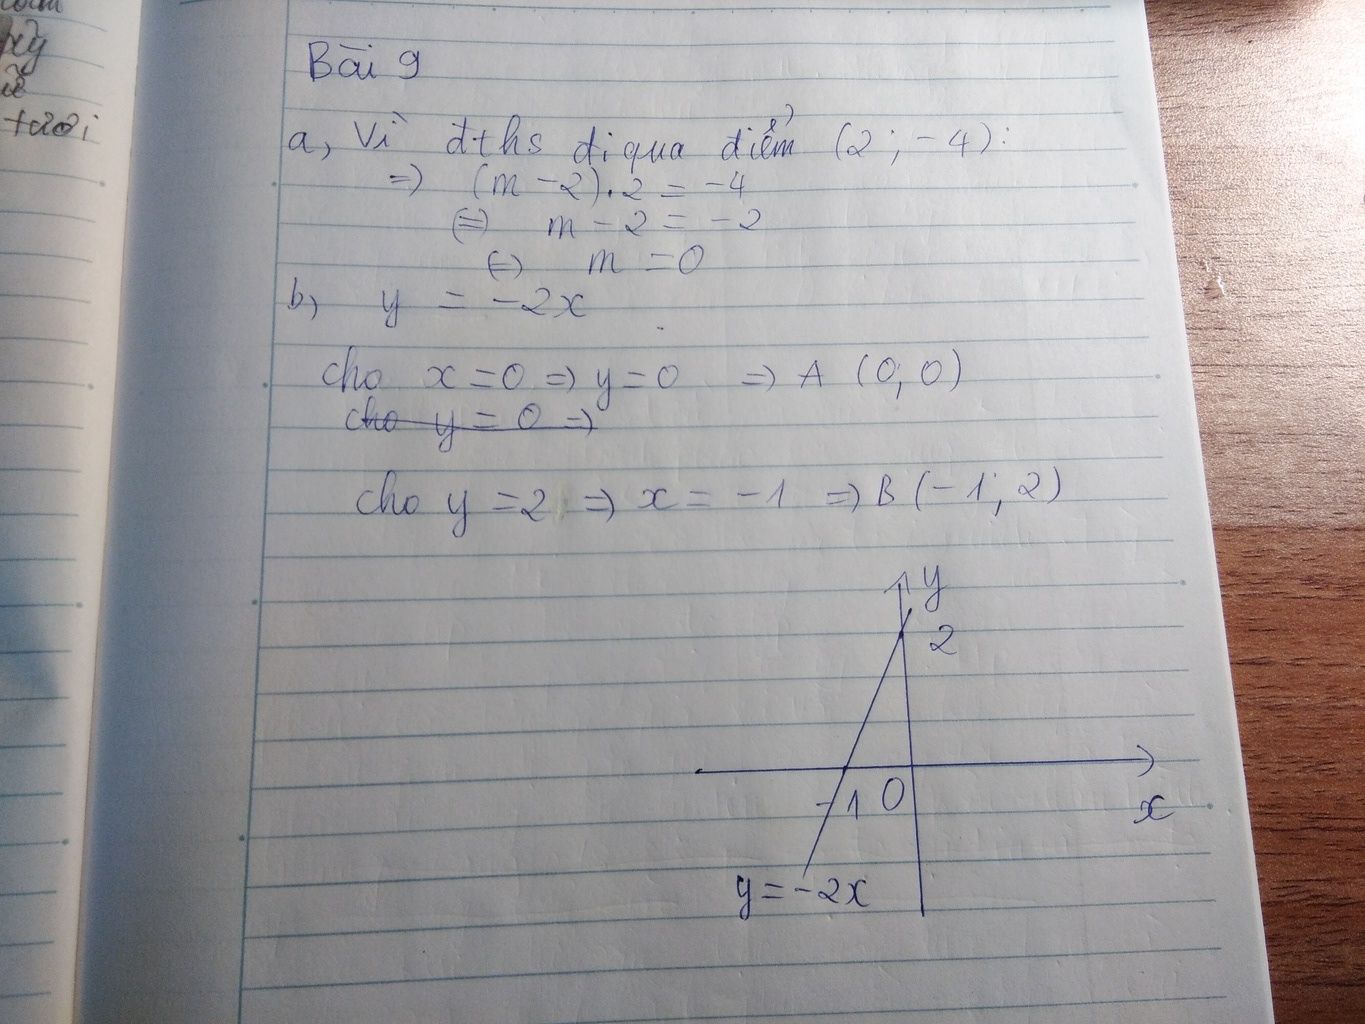 xy
tươi
Bài 9
a, Vì đths đi qua điểm (2; -4):
=> (m - 2).2 = -4
(=) m - 2 = -2
(=) m = 0
b, y = -2x
cho x = 0 => y = 0 => A (0; 0)
cho y = 0 =>
cho y = 2 => x = -1 => B (-1; 2)
y
2
-1 0
x
y = -2x